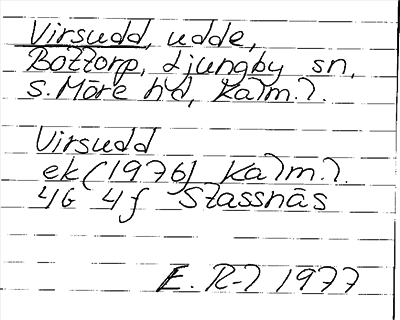 Virsudd, udde,
Bottorp, Ljungby sn,
S. Möre hd, Kalm. l.
Virsudd
ek (1976) Kalm. l.
4G 4f Stassnäs
E. R-l 1977